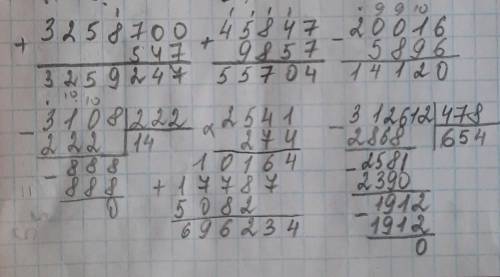 1
+ 3258700
547
3259247
1 1 1 1
+ 45847
9857
55704
9 9 10
- 20016
5896
14120
10 10
- 3108 | 222
222 | 14
- 888
888
0
× 2541
274
10164
+ 17787
5082
696234
- 312612 | 478
2868 | 654
- 2581
2390
- 1912
1912
0